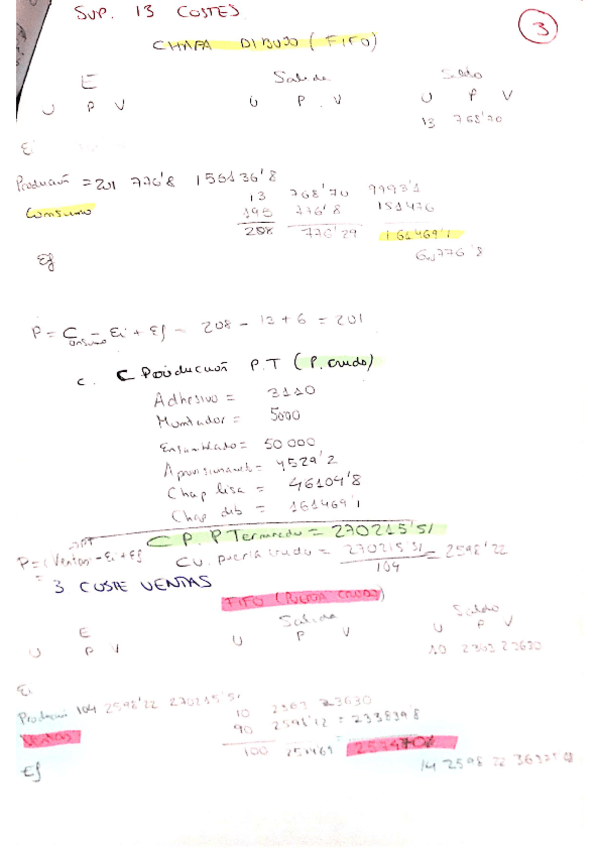 SUP. 13 COSTES
3
CHAPA DIBUJO (FIFO)
E Salida Saldo
U P V U P V U P V
13 768'70
Ei
Producción = 201 776'8 156136'8
13 768'70 9993'1
Consumo 195 776'8 151476
208 776'29 161469'1
Ef 6 776'8
P = Consumo - Ei + Ef = 208 - 13 + 6 = 201
c. C Producción P.T (P. crudo)
Adhesivo = 3110
Montador = 5000
Ensamblado = 50 000
Aprovisionamt = 4529'2
Chap lisa = 46104'8
Chap dib = 161469'1
C P. P Terminado = 270215'51
P = (Ventas - Ei + Ef
CU. puerta crudo = 270215'51 / 104 = 2598'22
3 COSTE VENTAS
FIFO (PUERTA CRUDO)
E Salida Saldo
U P V U P V U P V
10 2363 23630
Ei
Producción 104 2598'22 270215'51
10 2363 23630
Ventas 90 2598'22 = 233839'8
100
Ef 14 2598'22